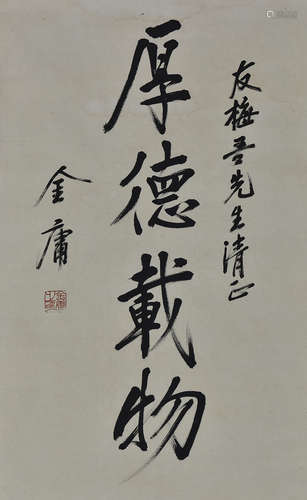 友梅吾先生清正
厚德載物
金庸